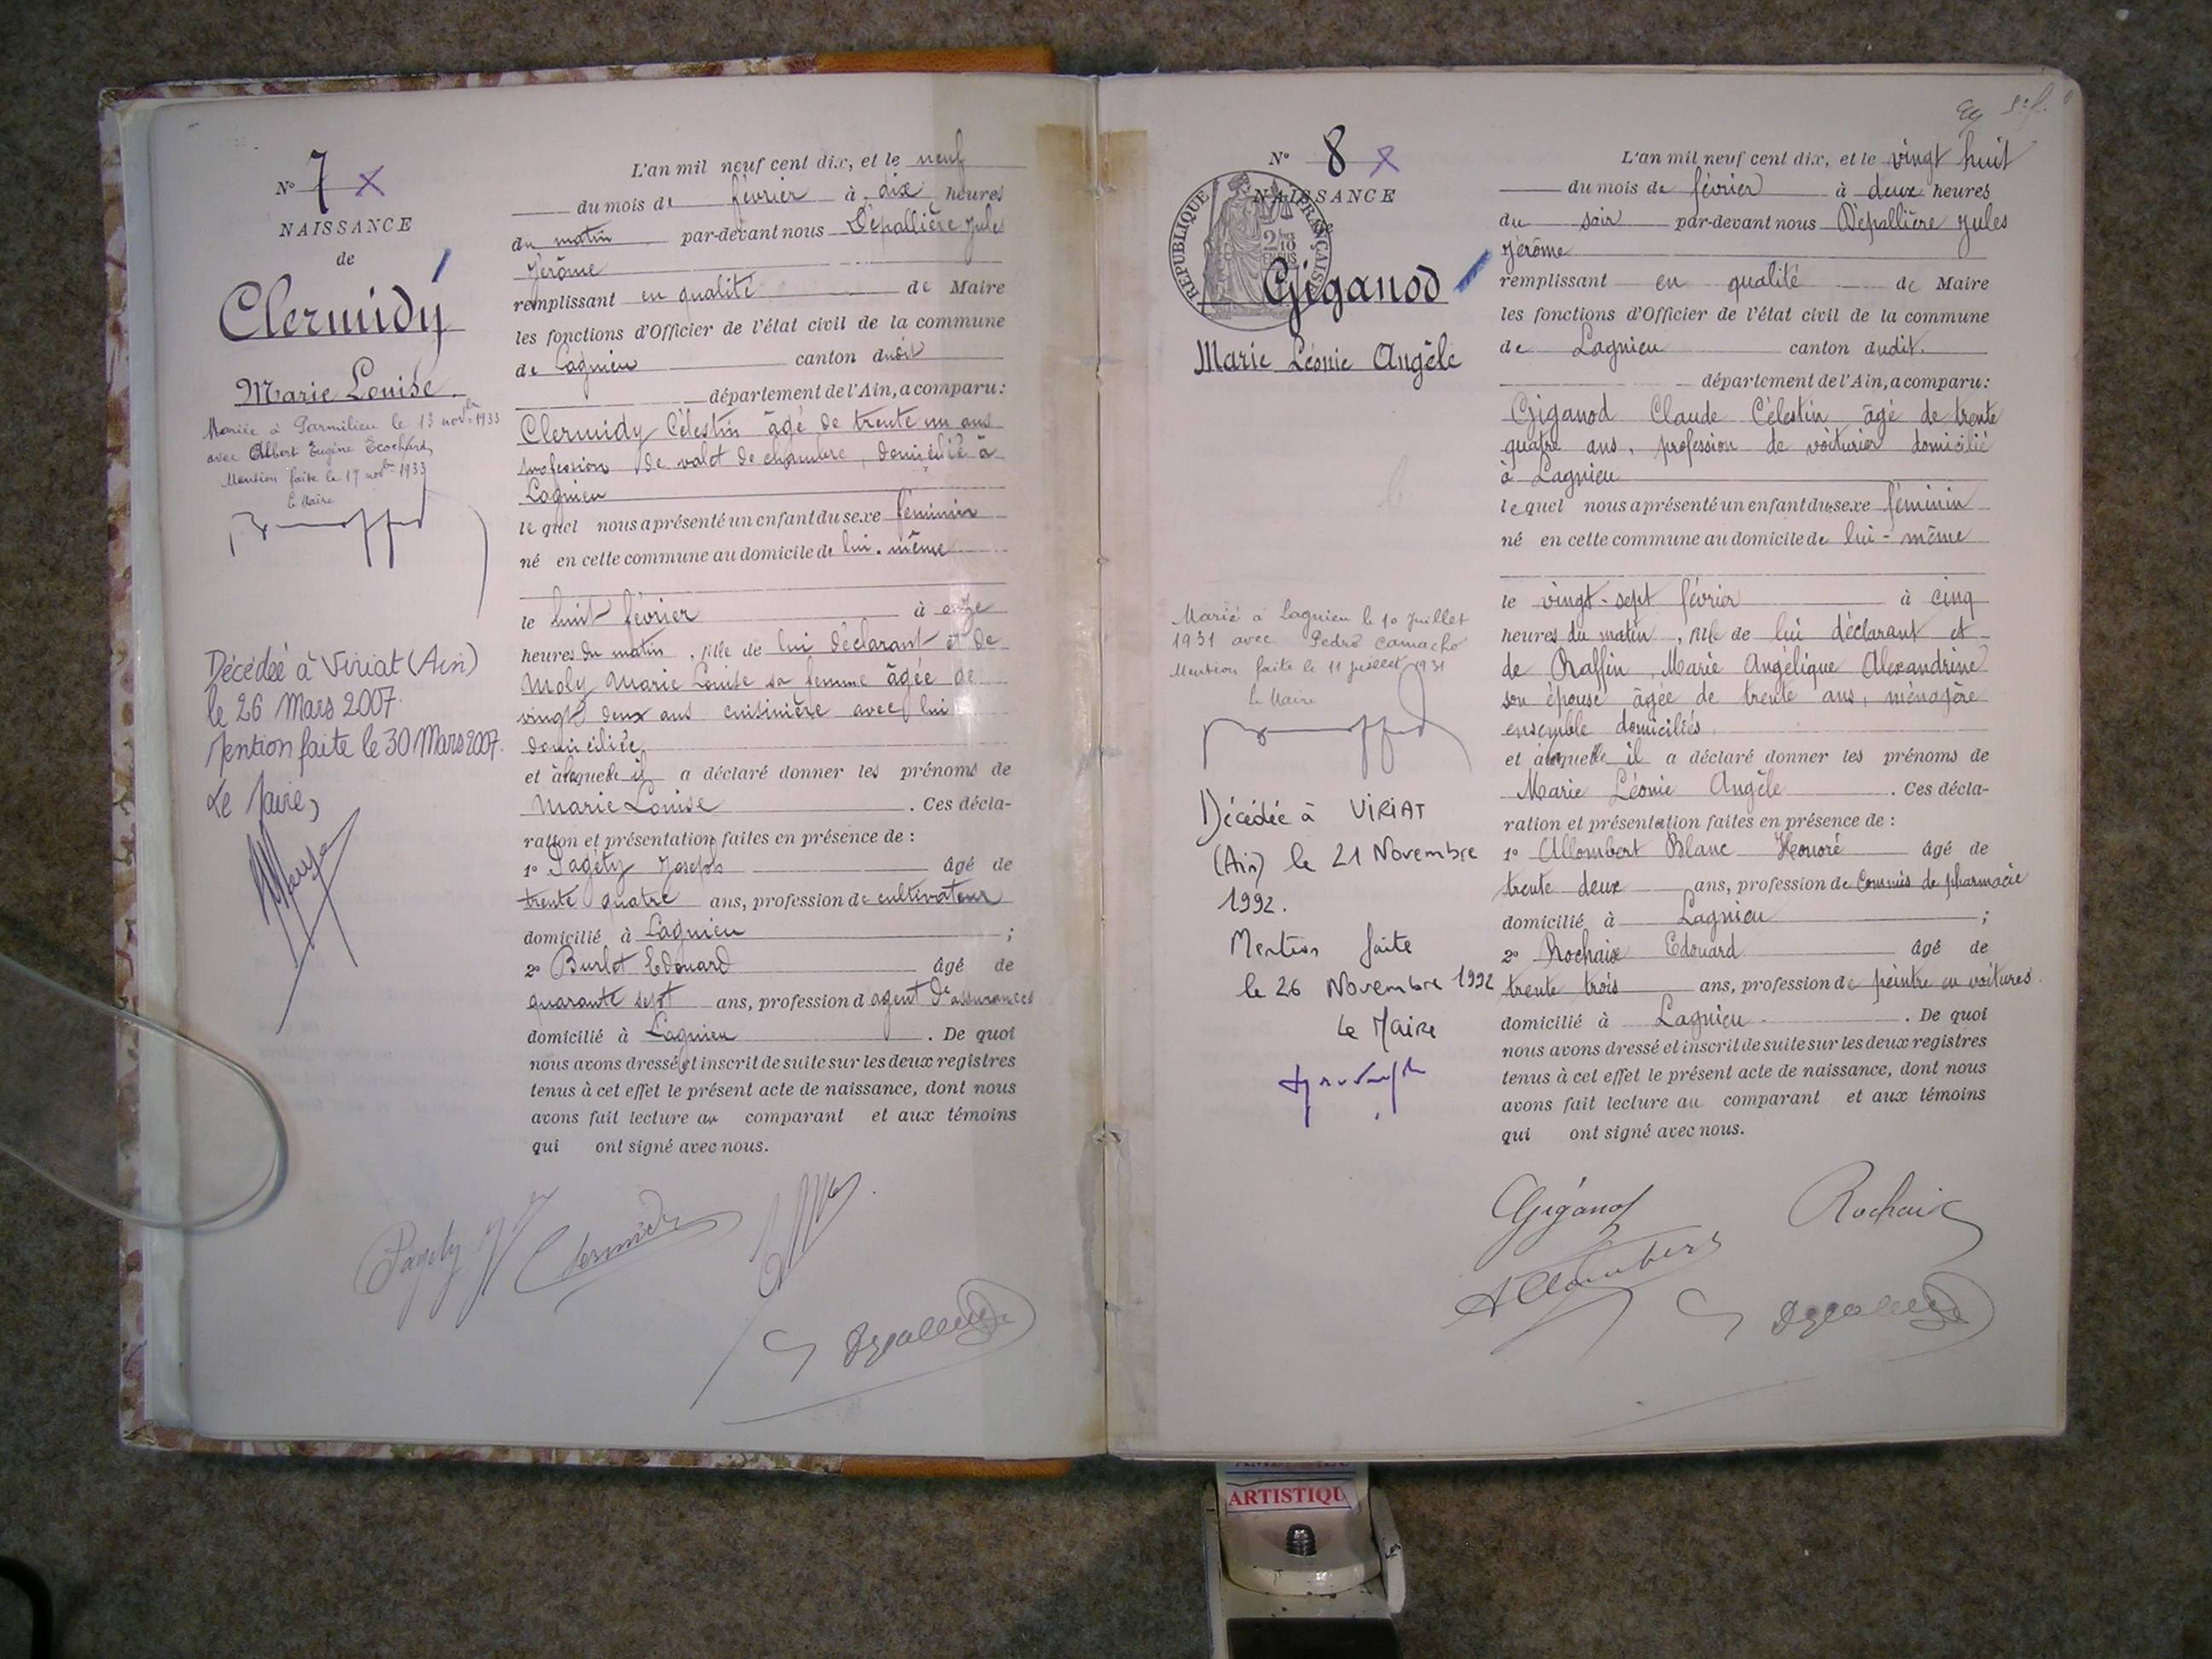 N° 7 x
NAISSANCE
de
Clermidy
Marie Louise
Mariée à Parmilieu le 13 novbre 1933
avec Albert Eugène Ecochard
Mention faite le 17 novbre 1933
le Maire
Décédée à Viriat (Ain)
le 26 Mars 2007.
Mention faite le 30 Mars 2007.
Le Maire,
L'an mil neuf cent dix, et le neuf
du mois de février à dix heures
du matin par-devant nous Dépallière Jules
Jérôme
remplissant en qualité de Maire
les fonctions d'Officier de l'état civil de la commune
de Lagnieu canton dudit
département de l'Ain, a comparu :
Clermidy Célestin âgé de trente un ans
profession de valet de chambre, domicilié à
Lagnieu
lequel nous a présenté un enfant du sexe féminin
né en cette commune au domicile de lui-même
le huit février à onze
heures du matin, fille de lui déclarant et de
Moly Marie Louise sa femme âgée de
vingt deux ans cuisinière avec lui
domiciliée
et à laquelle il a déclaré donner les prénoms de
Marie Louise . Ces décla-
ration et présentation faites en présence de :
1° Pagéty Joseph âgé de
trente quatre ans, profession de cultivateur
domicilié à Lagnieu ;
2° Burlet Edouard âgé de
quarante sept ans, profession d agent d'assurances
domicilié à Lagnieu . De quoi
nous avons dressé et inscrit de suite sur les deux registres
tenus à cet effet le présent acte de naissance, dont nous
avons fait lecture au comparant et aux témoins
qui ont signé avec nous.
Pagéty J
Clermidy
Dépallière
N° 8 x
NAISSANCE
de
RÉPUBLIQUE FRANÇAISE
2/10
EN SUS
Giganod
Marie Léonie Angèle
Marié à Lagnieu le 10 Juillet
1931 avec Pedro Camacho
Mention faite le 11 juillet 1931
le Maire
Décédée à VIRIAT
(Ain) le 21 Novembre
1992.
Mention faite
le 26 Novembre 1992
Le Maire
L'an mil neuf cent dix, et le vingt huit
du mois de février à deux heures
du soir par-devant nous Dépallière Jules
Jérôme
remplissant en qualité de Maire
les fonctions d'Officier de l'état civil de la commune
de Lagnieu canton dudit.
département de l'Ain, a comparu :
Giganod Claude Célestin âgé de trente
quatre ans, profession de voiturier domicilié
à Lagnieu
lequel nous a présenté un enfant du sexe féminin
né en cette commune au domicile de lui-même
le vingt-sept février à cinq
heures du matin, fille de lui déclarant et
de Raffin, Marie Angélique Alexandrine
son épouse âgée de trente ans, ménagère
ensemble domiciliés
et à laquelle il a déclaré donner les prénoms de
Marie Léonie Angèle . Ces décla-
ration et présentation faites en présence de :
1° Allombert Blanc Honoré âgé de
trente deux ans, profession de Commis de pharmacie
domicilié à Lagnieu ;
2° Rochaix Edouard âgé de
trente trois ans, profession de peintre en voitures
domicilié à Lagnieu . De quoi
nous avons dressé et inscrit de suite sur les deux registres
tenus à cet effet le présent acte de naissance, dont nous
avons fait lecture au comparant et aux témoins
qui ont signé avec nous.
Giganod
Rochaix
Allombert
Dépallière
ARTISTIQU